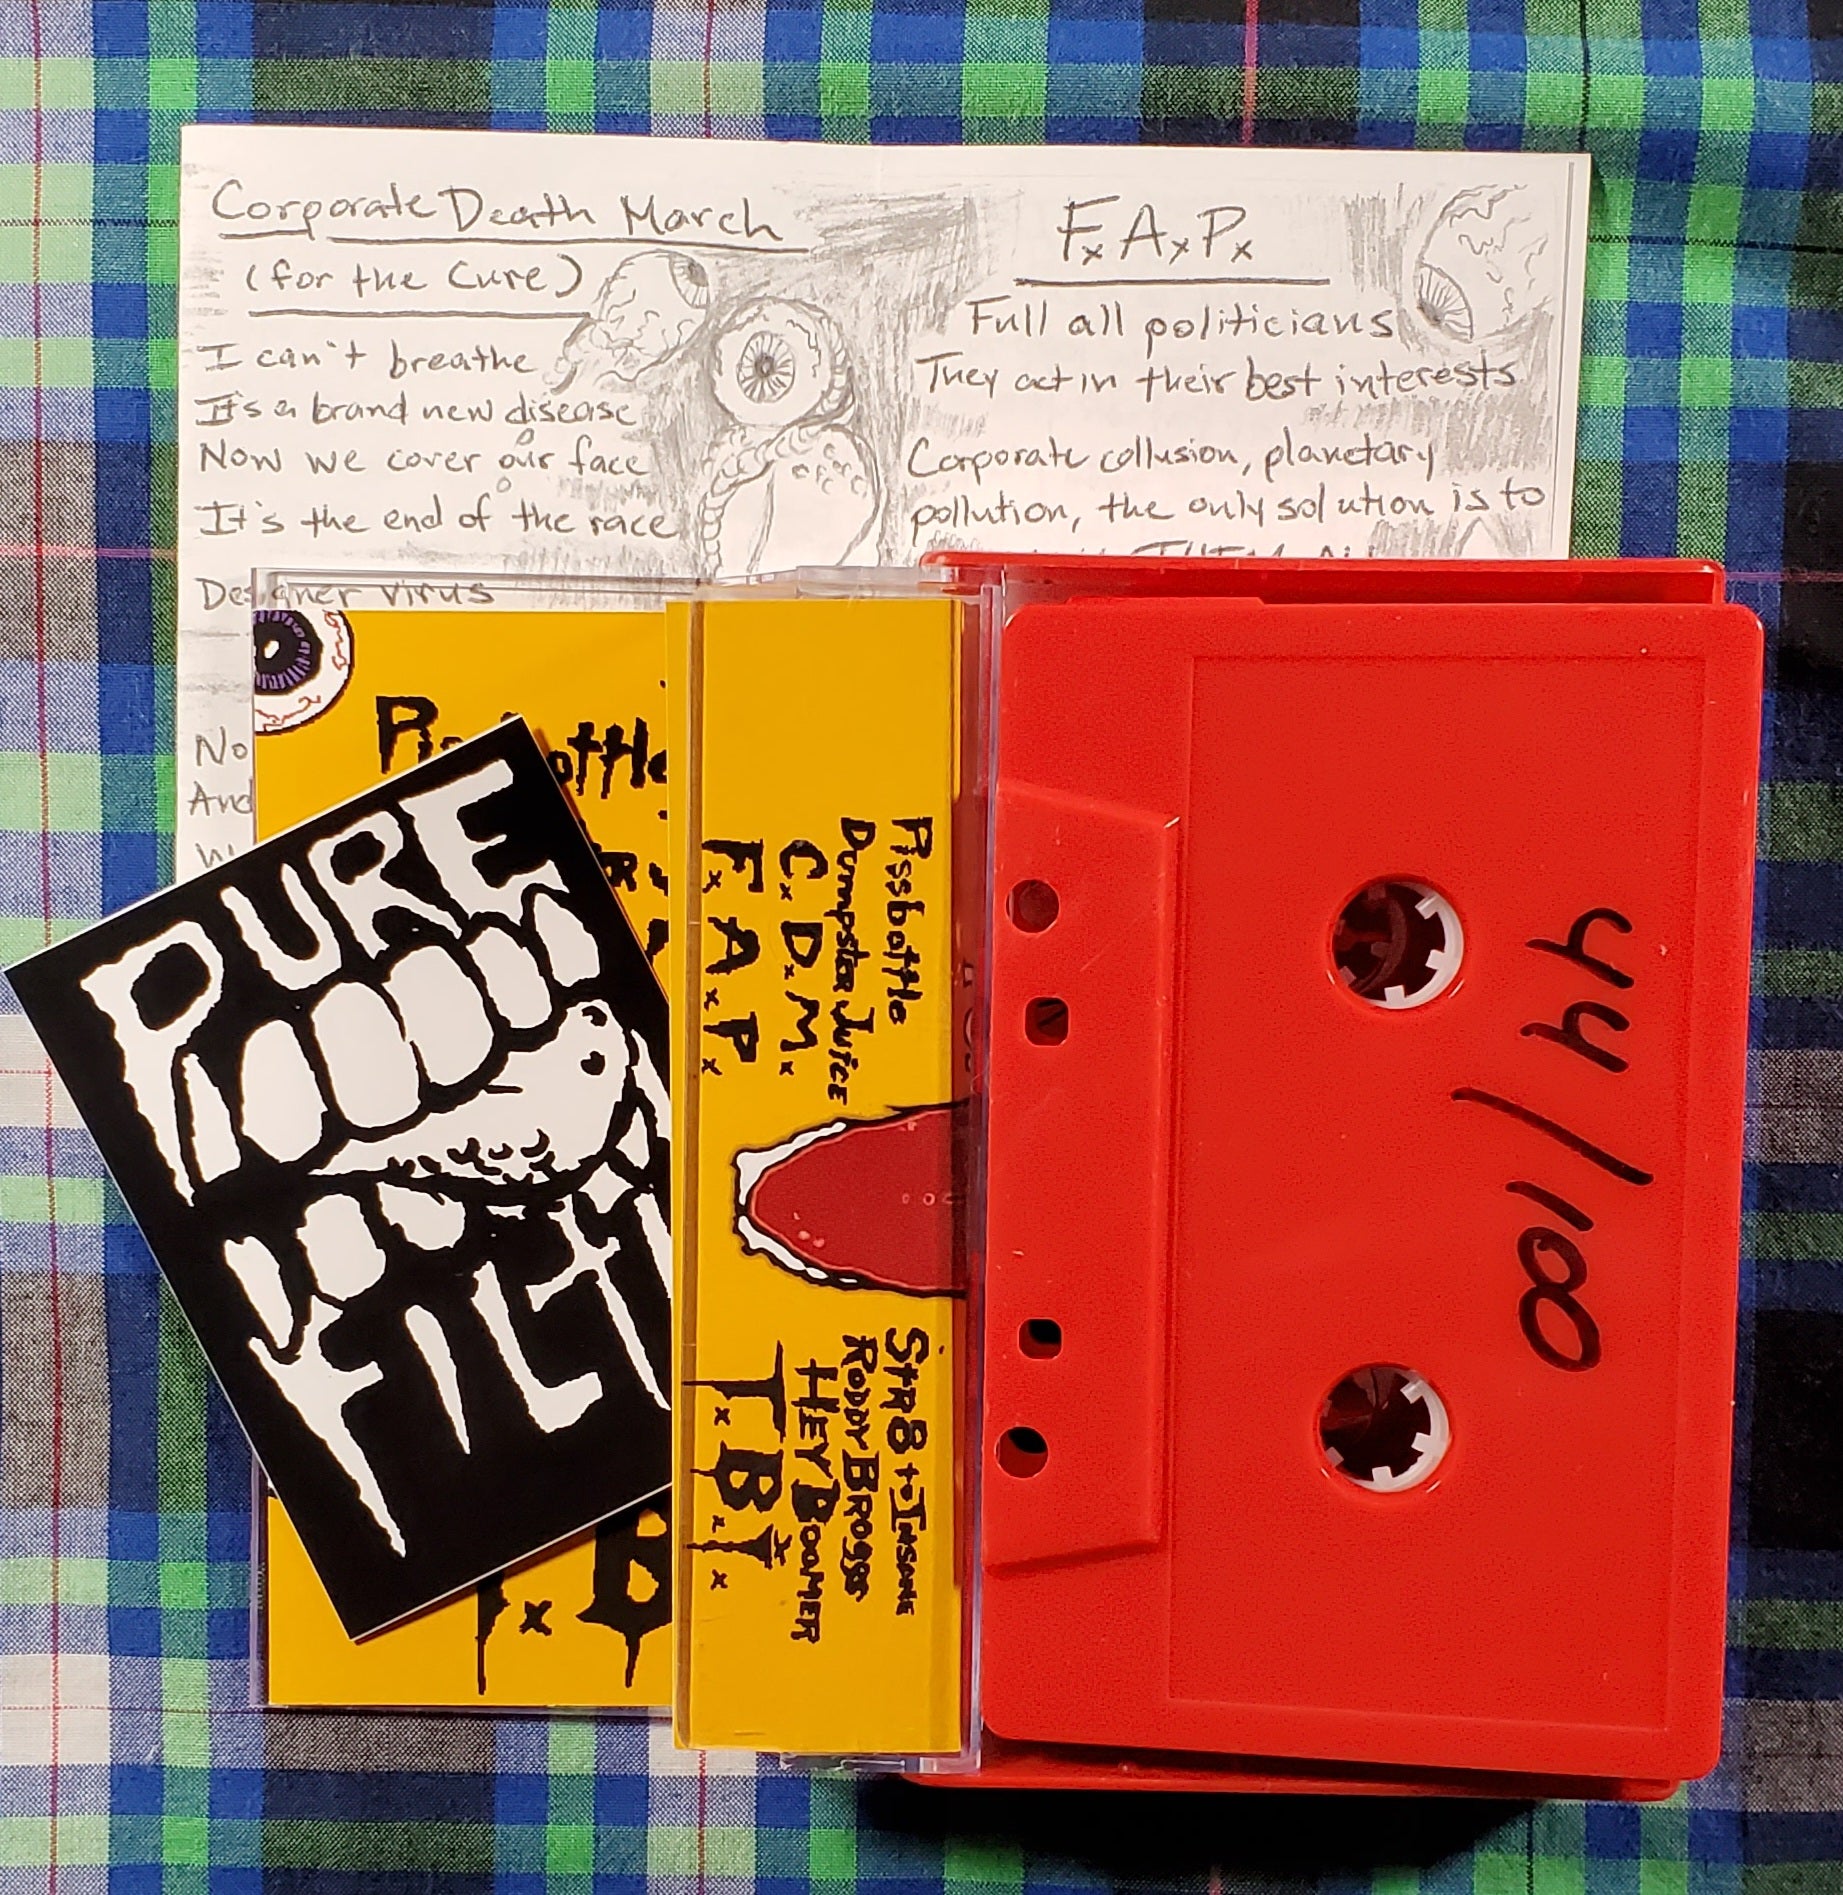 Corporate Death March
(for the Cure)
I can't breathe
It's a brand new disease
Now we cover our face
It's the end of the race
Designer virus
No
And
FxAxPx
Full all politicians
They act in their best interests
Corporate collusion, planetary
pollution, the only solution is to
THEM
PURE
FILTH
Pissbottle
Dumpster Juice
C.D.M.
FxAxPx
Str8 to Insane
Roddy Broggs
Hey Boomer
TxBxIx
44/100